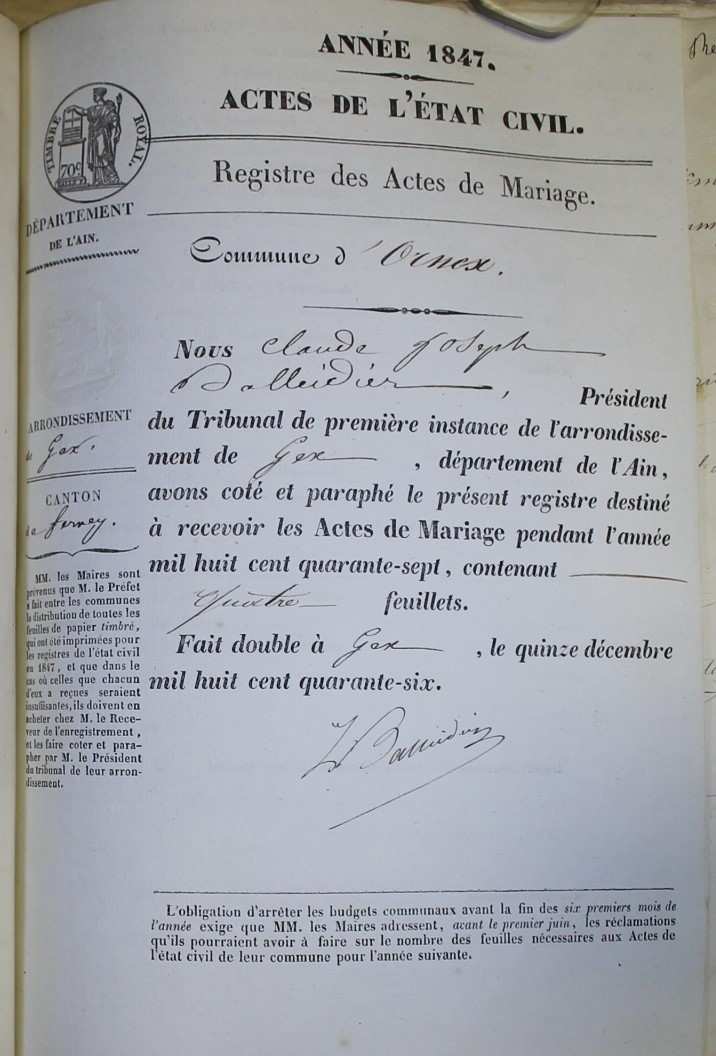 ANNÉE 1847.
ACTES DE L'ÉTAT CIVIL.
TIMBRE ROYAL.
70c
DÉPARTEMENT
DE L'AIN.
Registre des Actes de Mariage.
Commune d'Ornex.
Nous Claude Joseph
Balleidier, Président
du Tribunal de première instance de l'arrondisse-
ment de Gex, département de l'Ain,
avons coté et paraphé le présent registre destiné
à recevoir les Actes de Mariage pendant l'année
mil huit cent quarante-sept, contenant
quatre feuillets.
Fait double à Gex, le quinze décembre
mil huit cent quarante-six.
Balleidier
ARRONDISSEMENT
de Gex.
CANTON
de ferney.
MM. les Maires sont
prévenus que M. le Préfet
a fait entre les communes
la distribution de toutes les
feuilles de papier timbré,
qui ont été imprimées pour
les registres de l'état civil
en 1847, et que dans le
cas où celles que chacun
d'eux a reçues seraient
insuffisantes, ils doivent en
acheter chez M. le Rece-
veur de l'enregistrement,
et les faire coter et para-
pher par M. le Président
du tribunal de leur arron-
dissement.
L'obligation d'arrêter les budgets communaux avant la fin des six premiers mois de
l'année exige que MM. les Maires adressent, avant le premier juin, les réclamations
qu'ils pourraient avoir à faire sur le nombre des feuilles nécessaires aux Actes de
l'état civil de leur commune pour l'année suivante.